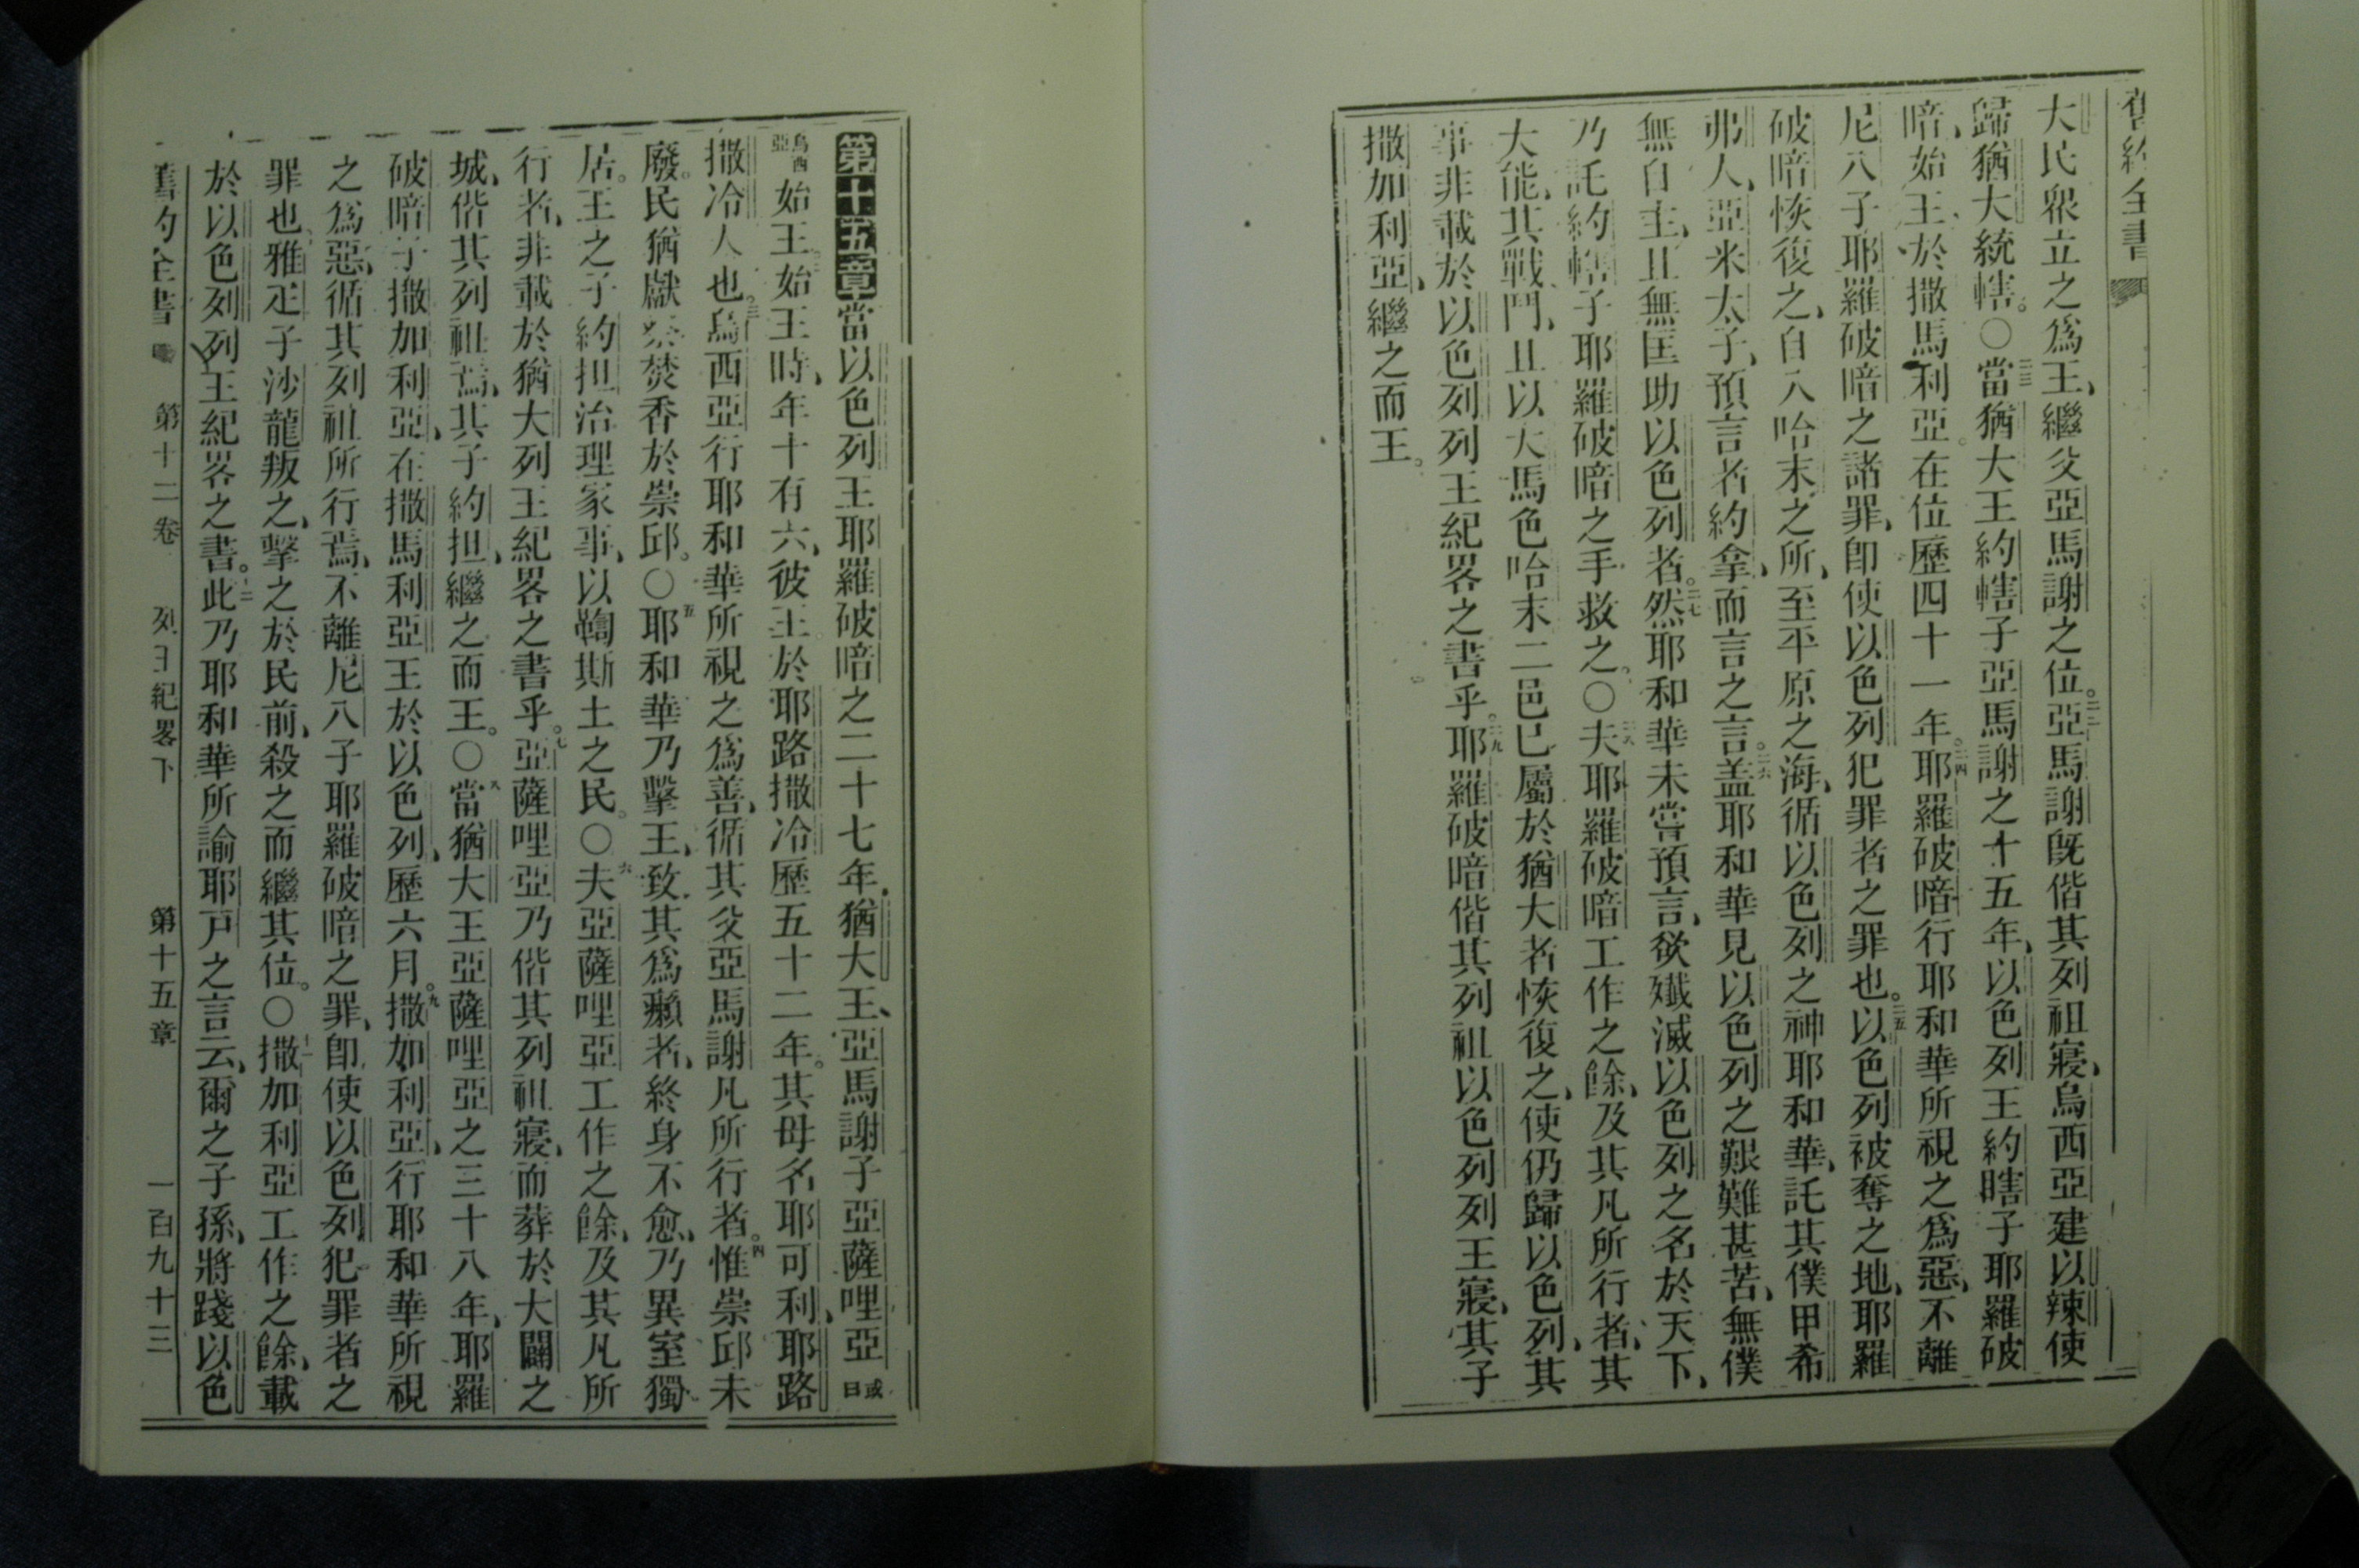 舊約全書
大民眾立之爲王、繼父亞馬謝之位。二二亞馬謝旣偕其列祖寢、烏西亞建以辣使
歸猶大統轄。○二三當猶大王約轄子亞馬謝之十五年、以色列王約瞎子耶羅破
暗、始王、於撒馬利亞。在位歷四十一年。二四耶羅破暗行耶和華所視之爲惡、不離
尼八子耶羅破暗之諸罪、卽使以色列犯罪者之罪也。二五以色列被奪之地、耶羅
破暗恢復之、自入哈末之所、至平原之海、循以色列之神耶和華、託其僕甲希
弗人、亞米太子、預言者約拿、而言之言。二六盖耶和華見以色列之艱難甚苦、無僕
無自主、且無匡助以色列者。二七然耶和華未嘗預言、欲殲滅以色列之名於天下、
乃託約轄子耶羅破暗之手救之。○二八夫耶羅破暗工作之餘、及其凡所行者、其
大能、其戰鬥、且以大馬色哈末二邑已屬於猶大者恢復之、使仍歸以色列、其
事非載於以色列列王紀畧之書乎。二九耶羅破暗偕其列祖以色列列王寢、其子
撒加利亞、繼之而王。
第十五章當以色列王耶羅破暗之二十七年、猶大王、亞馬謝子亞薩哩亞或曰
烏西亞始王、二始王時、年十有六、彼王於耶路撒冷歷五十二年。其母名耶可利、耶路
撒冷人也。三烏西亞行耶和華所視之爲善、循其父亞馬謝凡所行者。四惟崇邱未
廢。民猶獻祭焚香於崇邱。○五耶和華乃擊王、致其爲癩者、終身不愈、乃異室獨
居。王之子約担治理家事、以鞫斯土之民。○六夫亞薩哩亞工作之餘、及其凡所
行者、非載於猶大列王紀畧之書乎。七亞薩哩亞乃偕其列祖寢、而葬於大闢之
城、偕其列祖焉、其子約担、繼之而王。○八當猶大王亞薩哩亞之三十八年、耶羅
破暗子撒加利亞、在撒馬利亞王於以色列、歷六月。九撒加利亞、行耶和華所視
之爲惡、循其列祖所行焉、不離尼八子耶羅破暗之罪、卽使以色列犯罪者之
罪也、雅疋子沙龍叛之、擊之於民前、殺之而繼其位。○十一撒加利亞工作之餘、載
於以色列列王紀畧之書。十二此乃耶和華所諭耶戸之言云、爾之子孫、將踐以色
舊約全書 第十二卷 列王紀畧下 第十五章 一百九十三